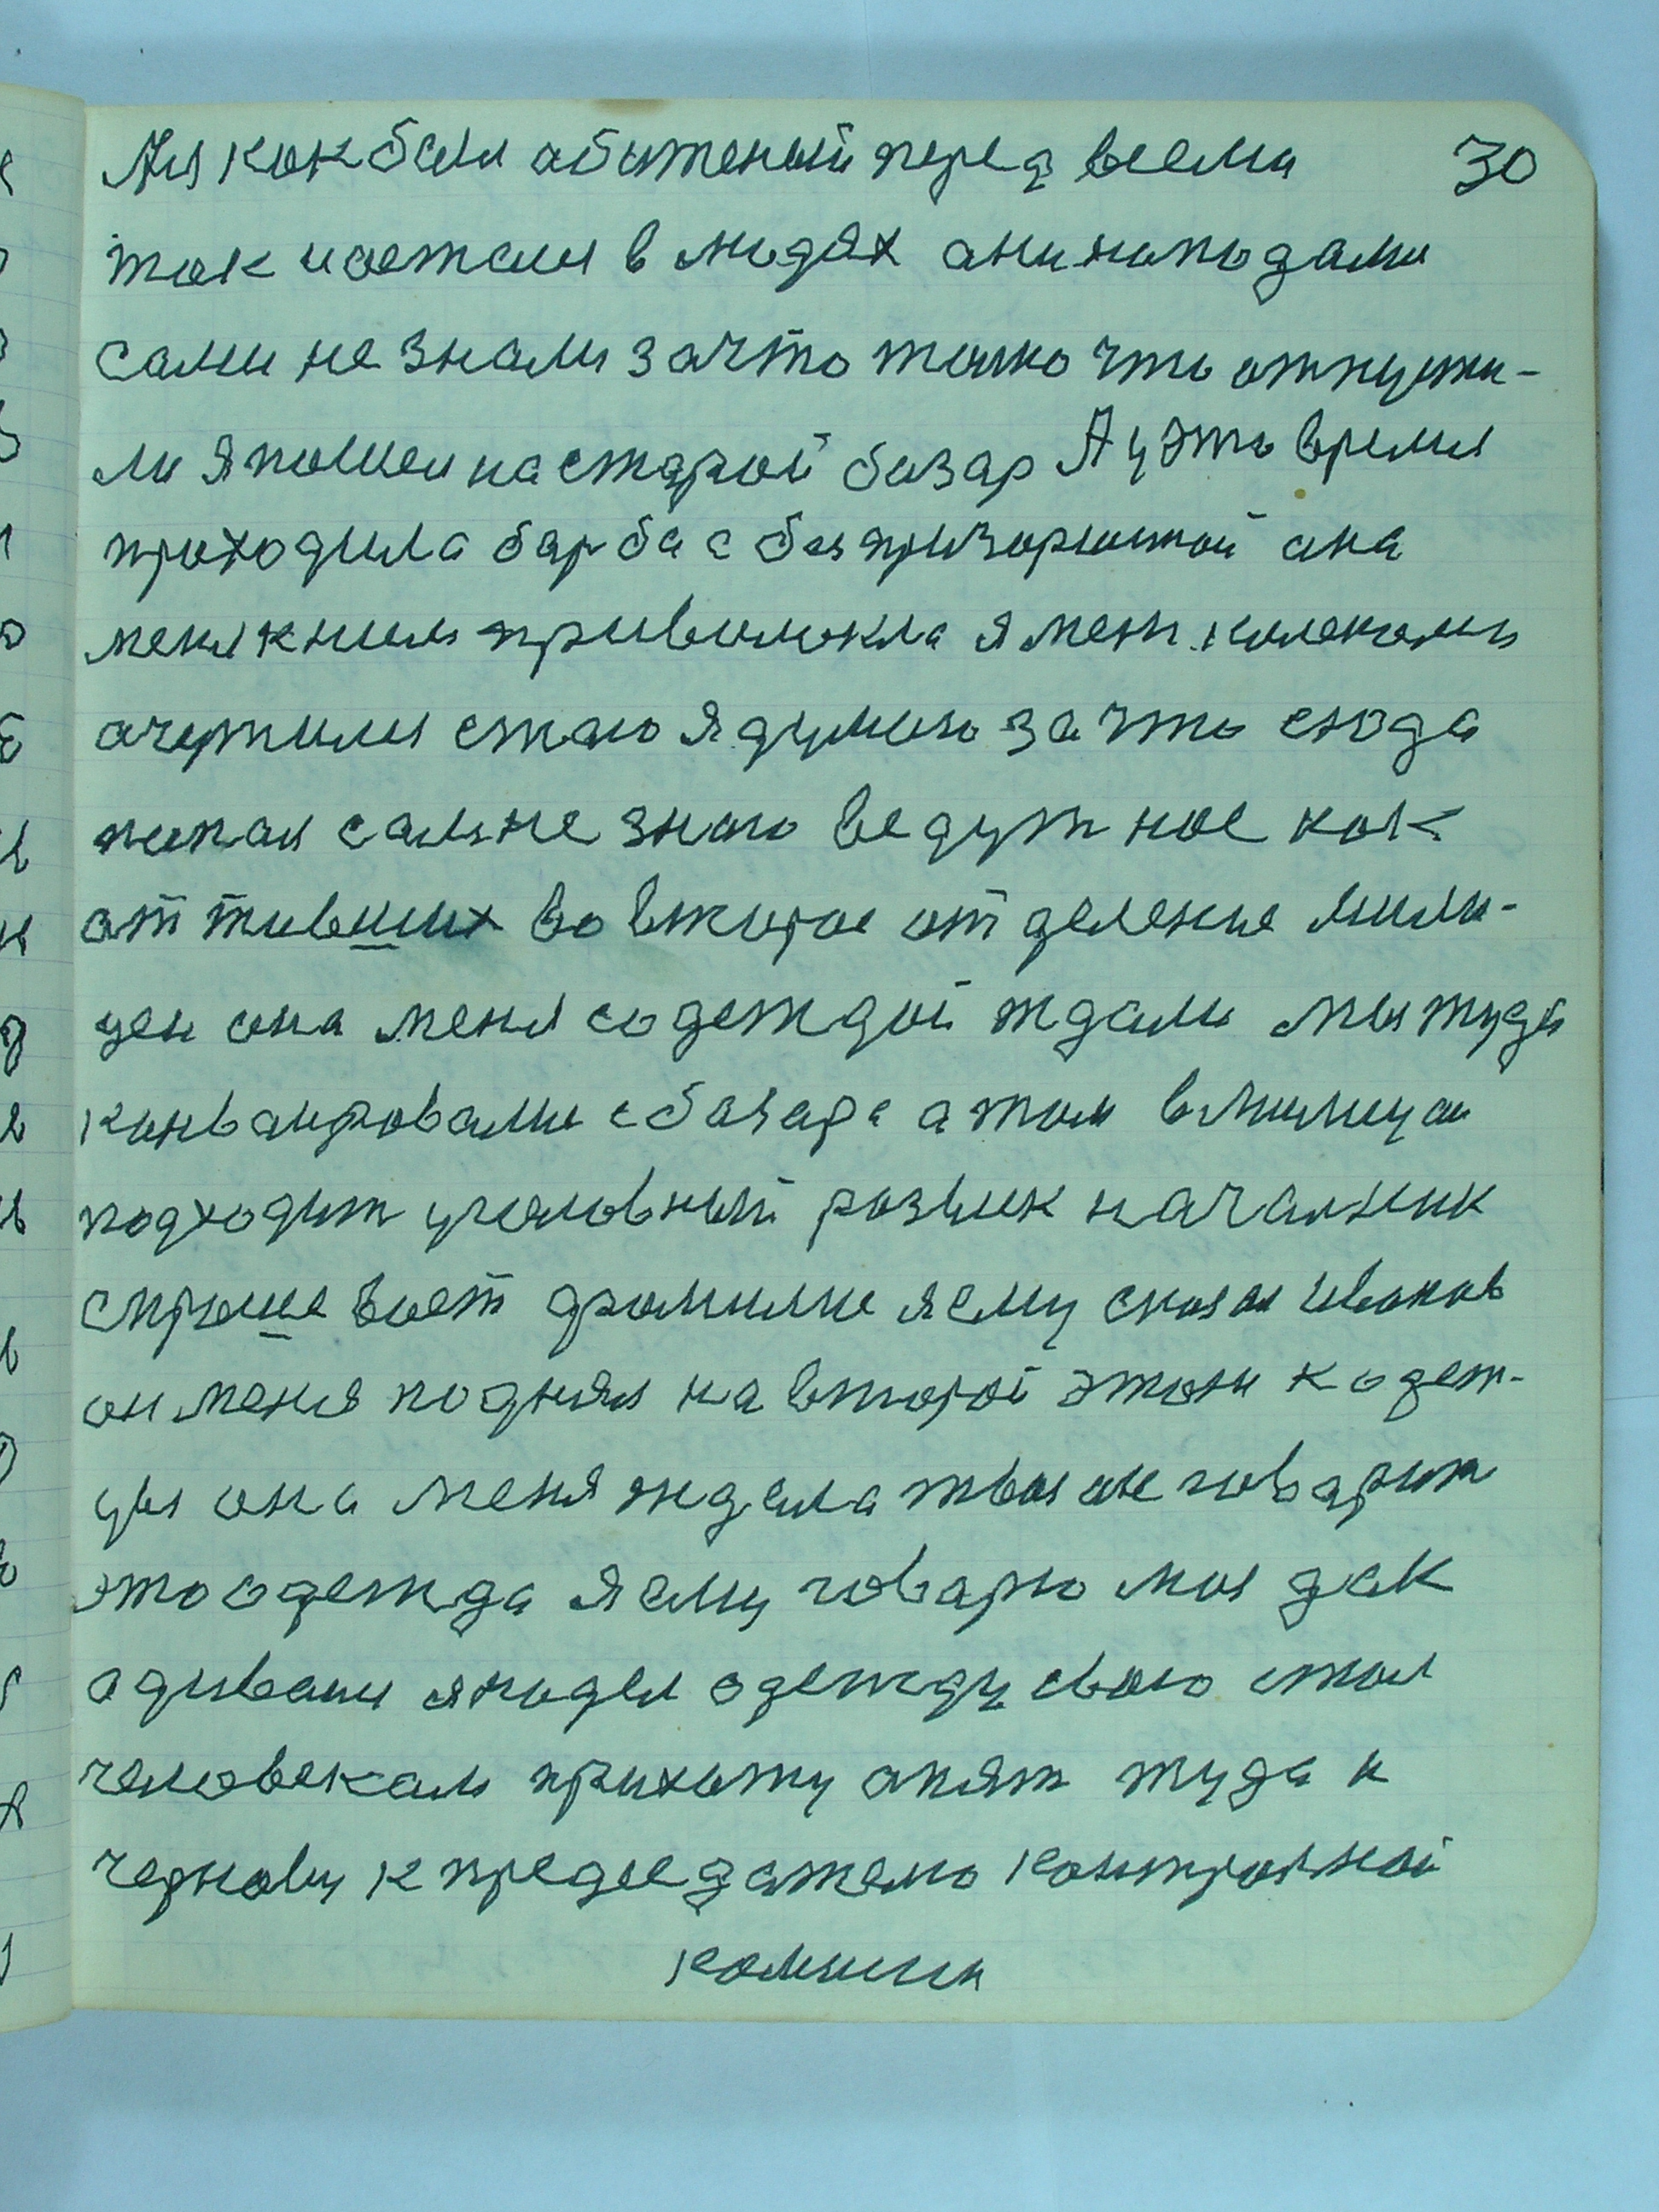 Ая как был абиженый перед всеми 30
так и астался в людях они нападали
сами не знали за что толко что отпусти-
ли я пошел на старой базар А у это время
проходила барба с безпризорностой ана
меня к ним приволокла я меж колекамы
очутился стаю я думою за что сюда
попал сам не знаю ведут нас как
оттивших во второе отделение мили-
цеи она меня содеждой ждали мы туда
конваировали с базара а там в милицаи
подходит уголовный розыск началник
спрашевает фамилие я ему сказал Иванов
он меня поднял на второй этаж к одеж-
ды она меня ждала твоя он говарит
это одежда я ему говарю моя дак
одивайся я надел одежду свою стал
человекам прихожу опять туда к
чернову к председателю контролной
комисии